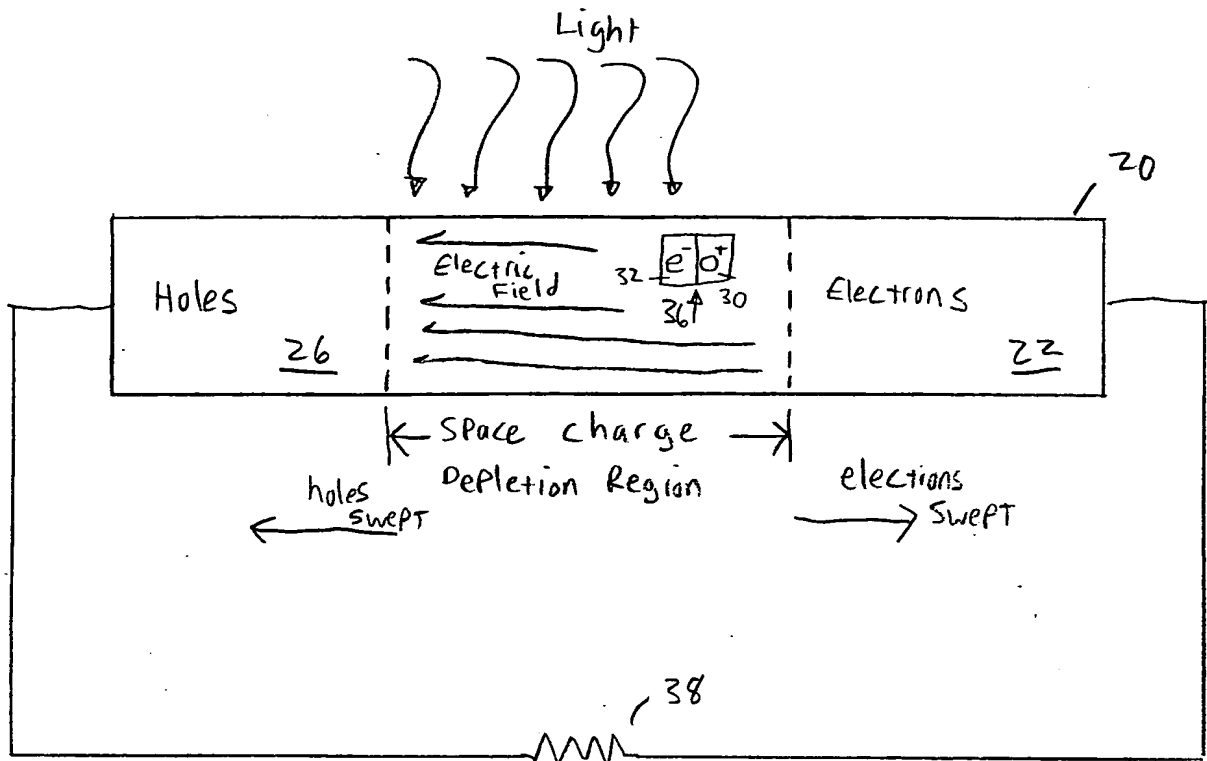 Light
20
Electric
Field
e⁻ 0⁺
32
36 30
Holes
Electrons
26
22
Space charge
Depletion Region
holes
swept
elections
swept
38